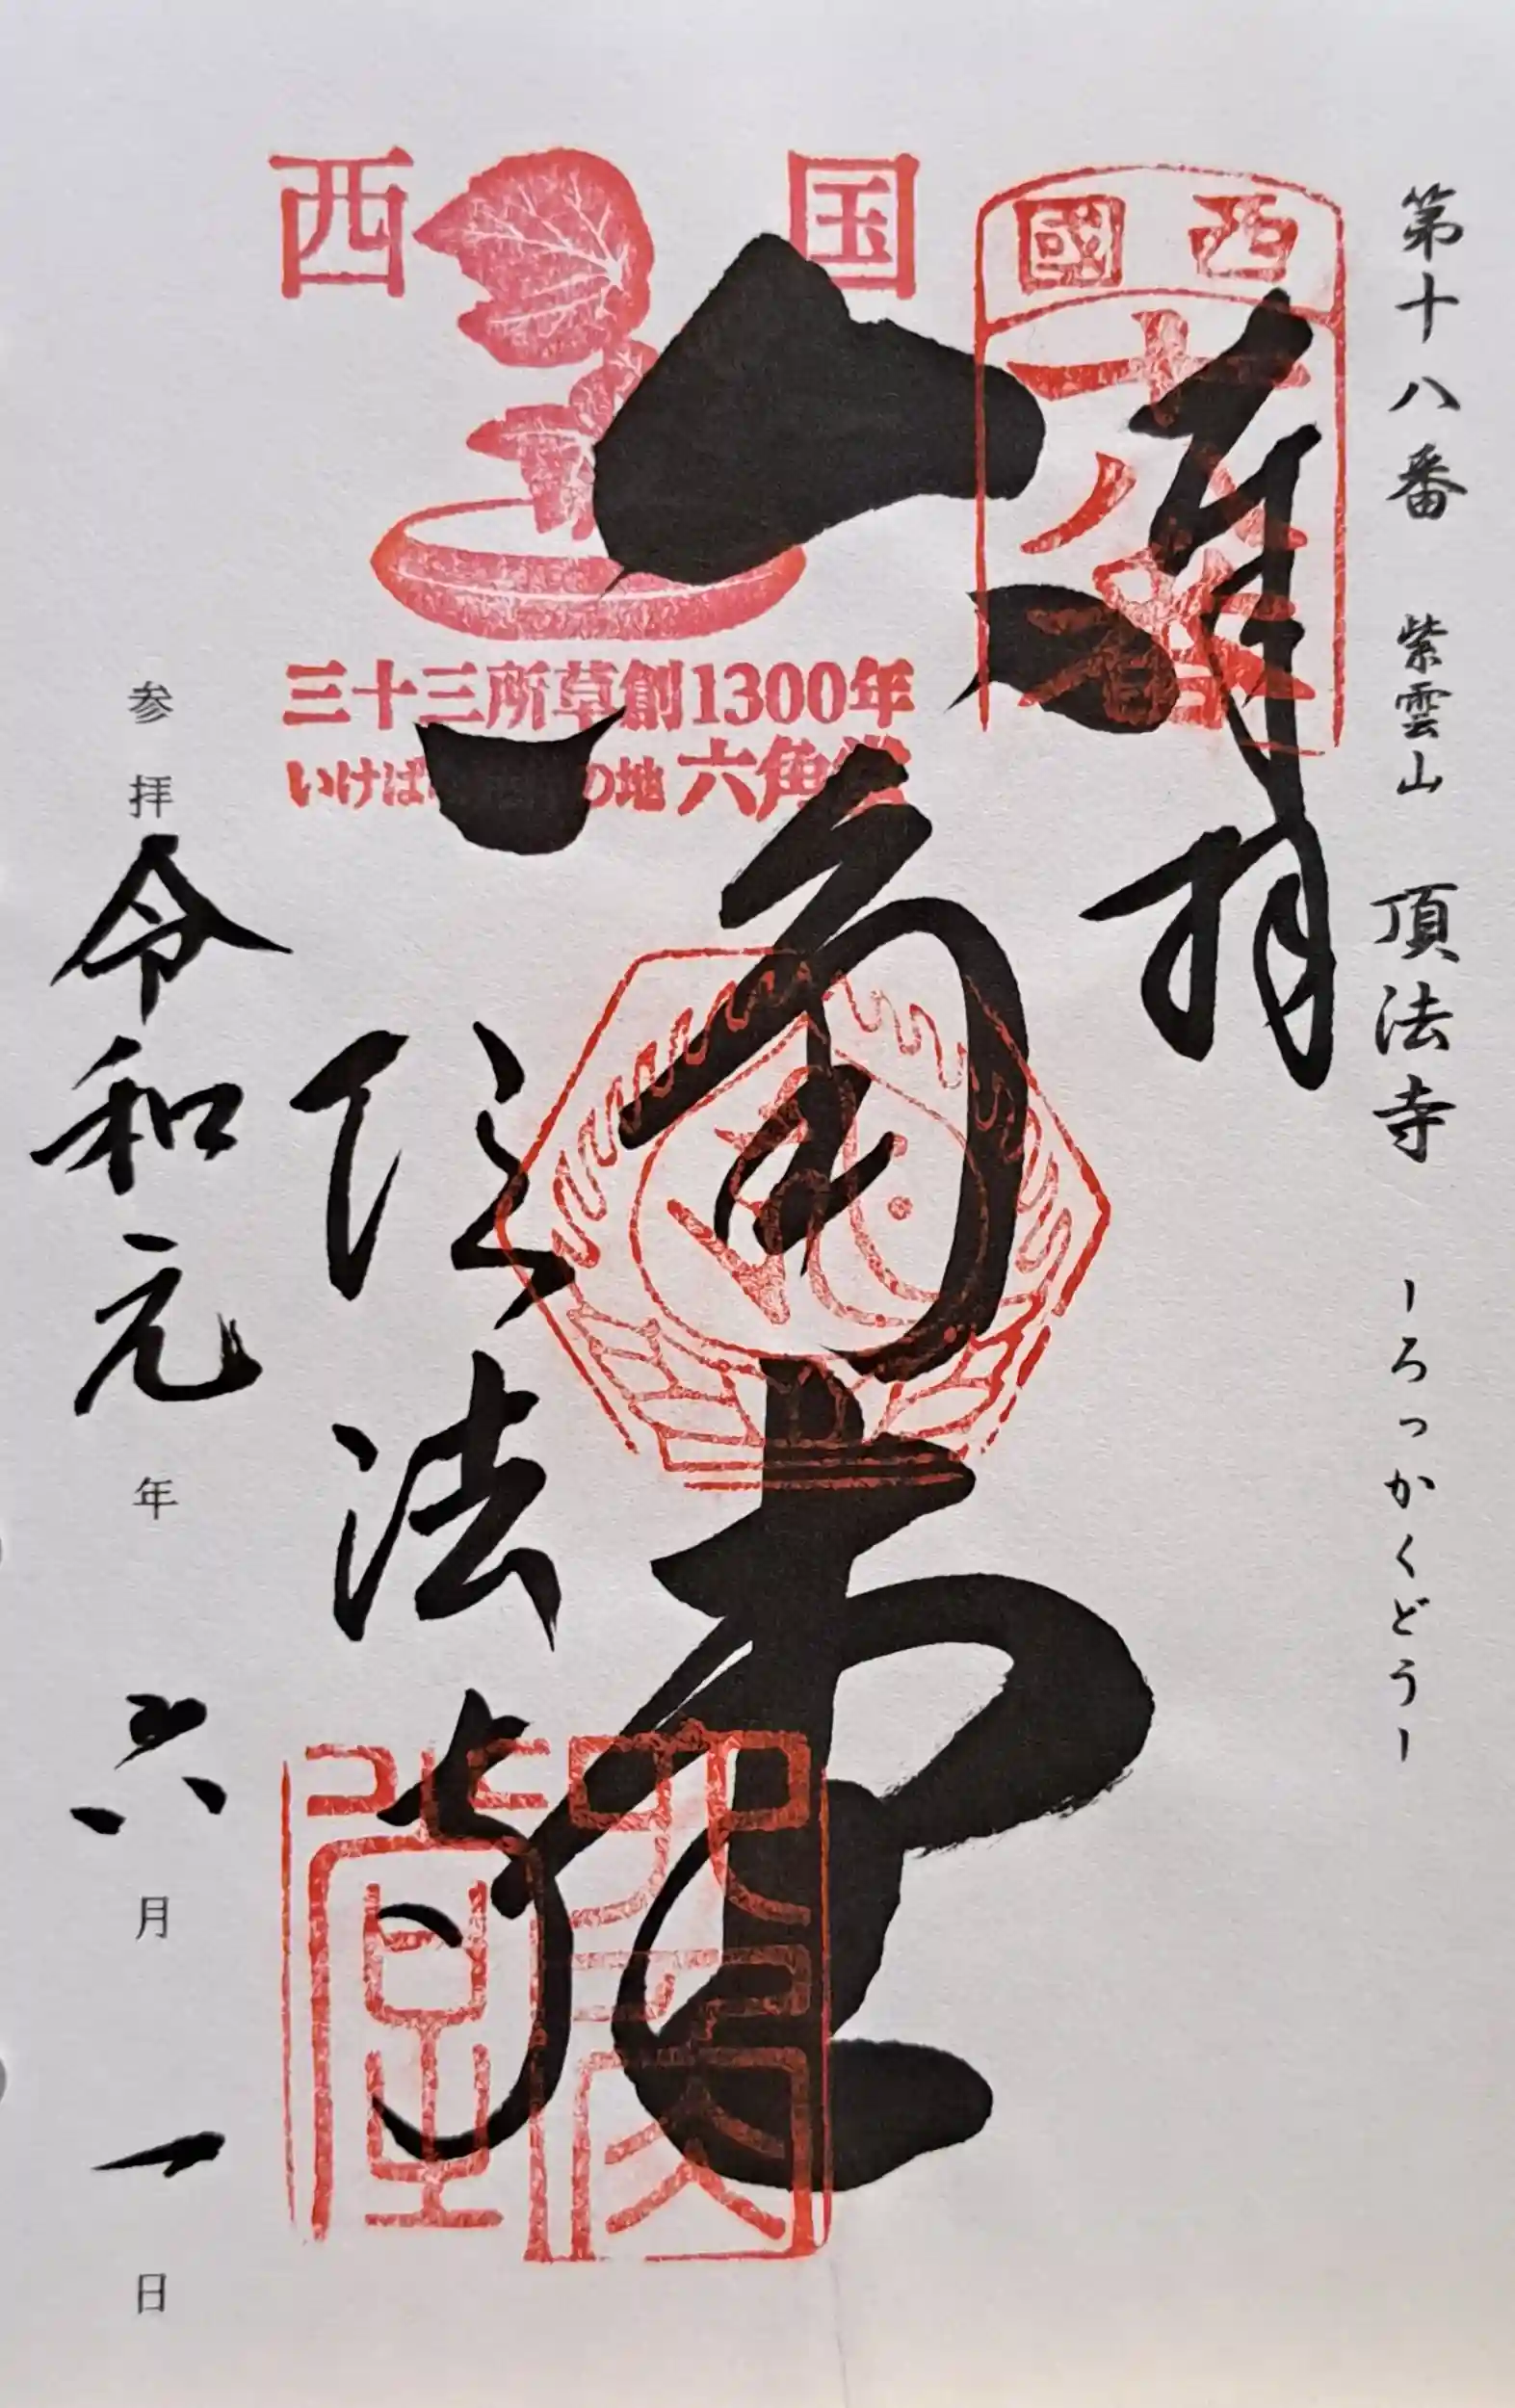 第十八番 紫雲山 頂法寺 ーろっかくどうー
奉拝
西國
十八番
六角堂
西国
三十三所草創1300年
いけばな の地 六角堂
頂法寺
六角堂
参拝 令和元年 六月 一日